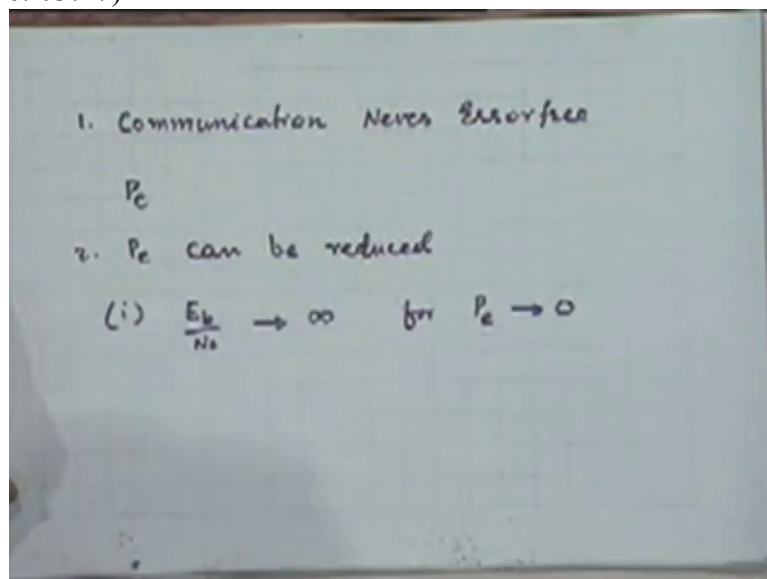 1. Communication Never Errorfree
Pe
2. Pe can be reduced
(i) Eb/No → ∞ for Pe → 0